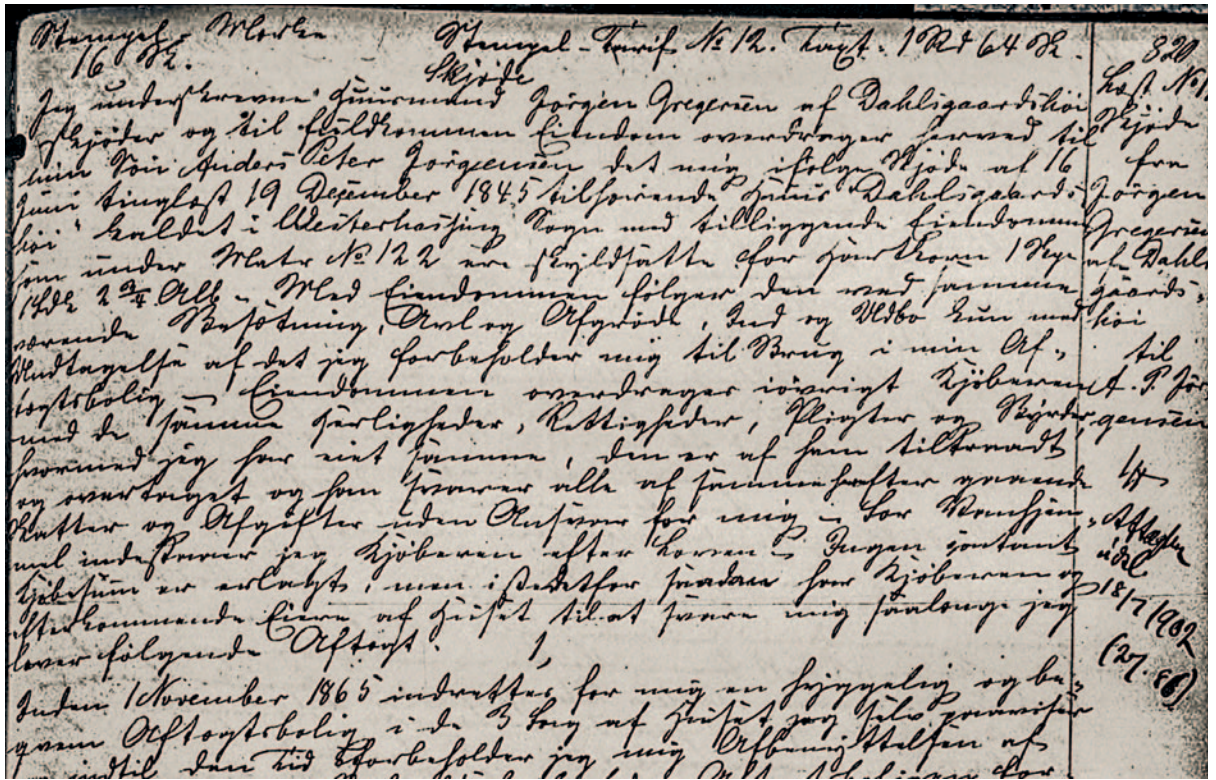 Stempel-Marke Stempel-Tarif № 12. Taxt. 1 Rd 64 Sk.
16 Sk.
Skjöde
Jeg underskrevne Huusmand Jörgen Gregersen af Dahlsgaardshöi
skjöder og til fuldkommen Eiendom overdrager herved til
min Sön Anders Peter Jörgensen det mig ifölge Skjöde af 16
Juni tinglæst 19 Dezember 1845 tilhörende Huus "Dahlsgaards
höi" kaldet i Westerhassing Sogn med tilliggende Eiendomme
som under Matr № 122 ere skyldsatte for Hartkorn 1 Skp
1 Fdk 2 3/4 Alb - Med Eiendommen fölger den ved samme
værende Besætning, Avl og Afgröde, Ind og Udbo kun med
Undtagelse af det jeg forbeholder mig til Brug i min Af-
tægtsbolig - Eiendommen overdrages iövrigt Kjöberen
med de samme Herligheder, Rettigheder, Pligter og Byrder
hvormed jeg har eiet samme, den er af ham tiltraadt
og overtaget og han svarer alle af samme herefter gaaende
Skatter og Afgifter uden Ansvar for mig - For Vanhjem-
mel indestaaer jeg Kjöberen efter Loven - Ingen contant
Kjöbesum er erlagt, men istedetfor saadan har Kjöberen og
efterkommende Eiere af Huset til at svare mig saalænge jeg
lever fölgende Aftægt.
1,
Inden 1 November 1865 indrettes for mig en hyggelig og be-
qvem Aftægtsbolig i de 3 Fag af Huset jeg selv paaviser
indtil den Tid forbeholder jeg mig Afbenyttelsen af
for
820
Læst № 1
Skjöde
fra
Jörgen
Gregersen
af Dahls
gaards-
höi
til
A. P. Jör
gensen
Aflæst
udsl
18/7 1902
(27. 86)